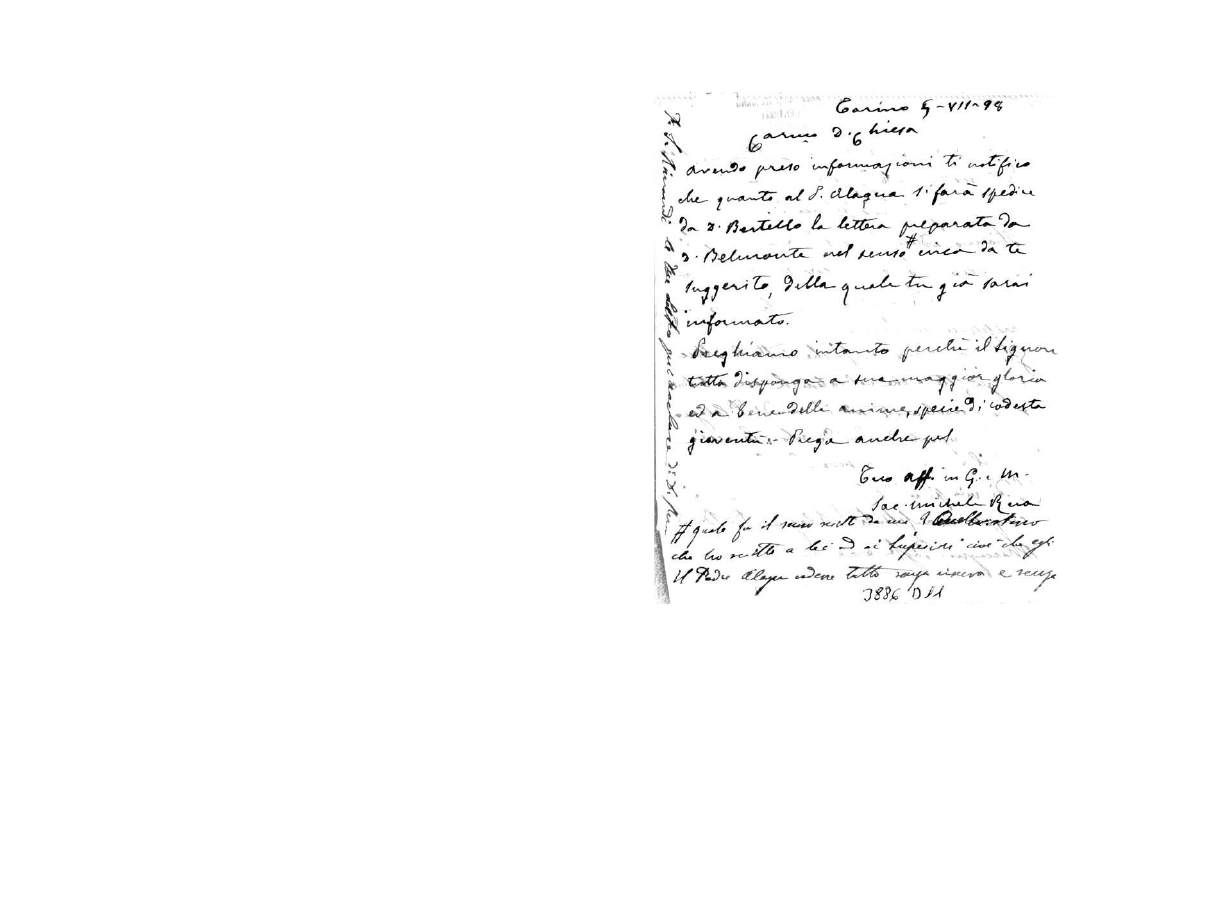 Torino 5-VII-98
Carmo D. Chiesa
avendo preso informazioni ti notifico
che quanto al P. Alagna si farà spedire
da D. Bertello la lettera preparata da
D. Belmonte nel senso # circa da te
suggerito, della quale tu già sarai
informato.
Preghiamo intanto perchè il Signore
tutto disponga a sua maggior gloria
ed a bene delle anime, specie di codesta
gioventù. - Prega anche pel
Tuo aff. in G. e M.
Sac. Michele Rua
# quale fu il senso
che ho scritto a lei ed ai Superiori cioè che egli
il Padre Alagna cedere tutto senza riserva e senza
3886 D11